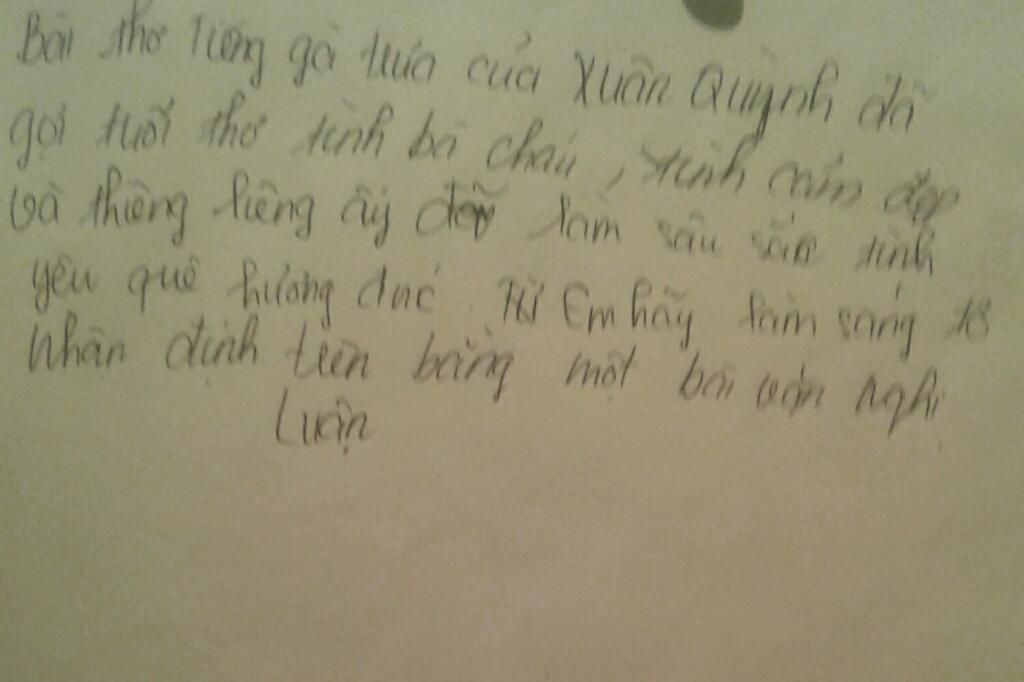 Bài thơ Tiếng gà trưa của Xuân Quỳnh đã
gọi tuổi thơ tình bà cháu, tình cảm đẹp
và thiêng liêng ấy đã làm sâu sắc tình
yêu quê hương đước. Em hãy làm sáng tỏ
Nhận định trên bằng một bài văn nghị
Luận